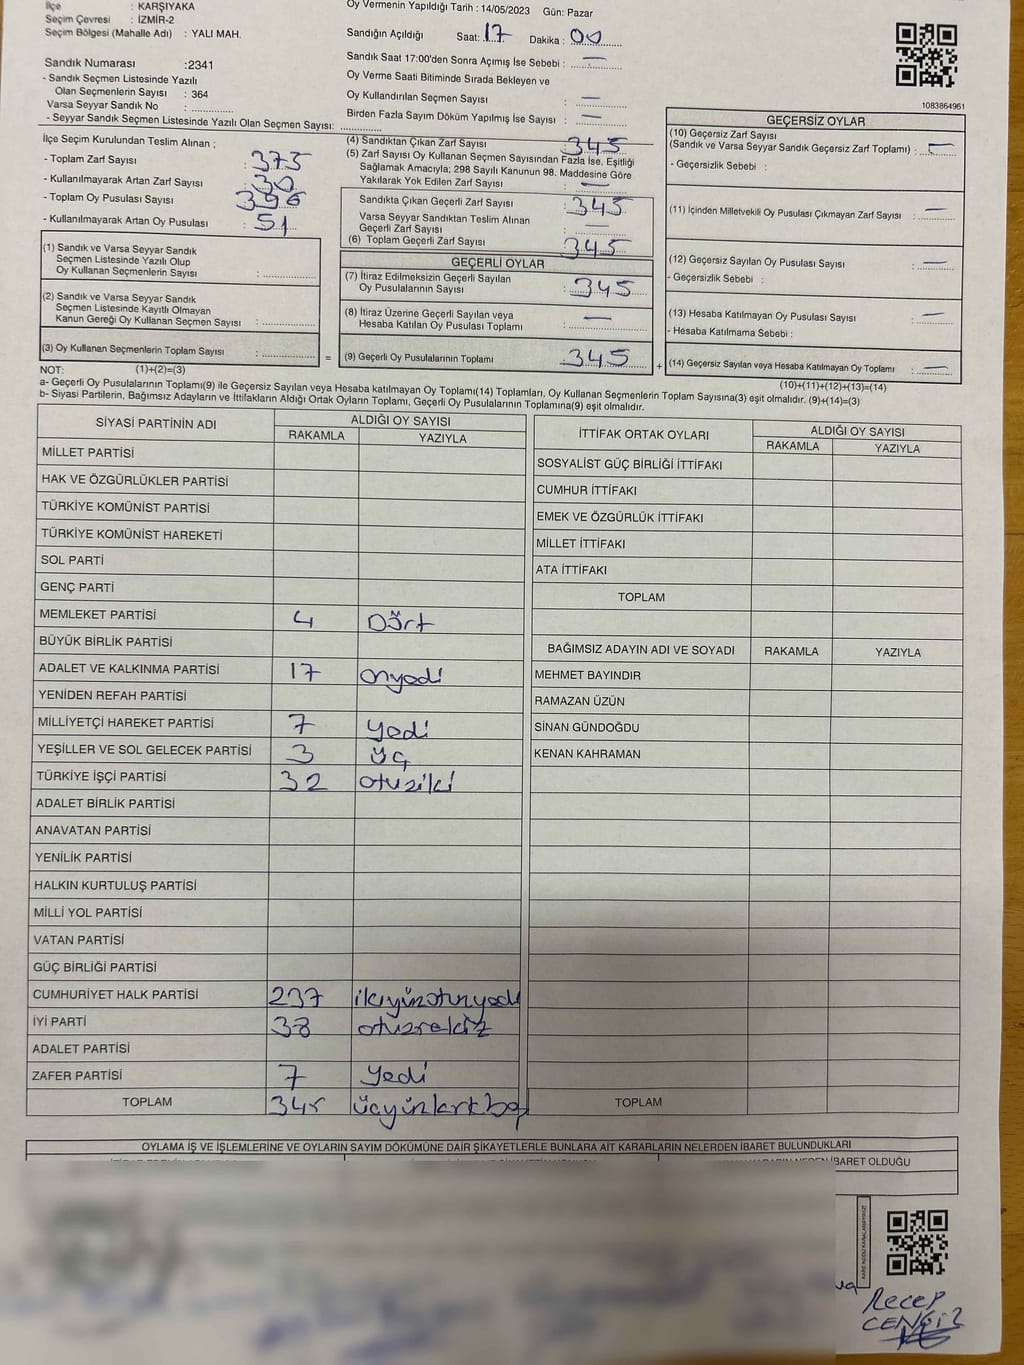 İlçe : KARŞIYAKA
Seçim Çevresi : İZMİR-2
Seçim Bölgesi (Mahalle Adı) : YALI MAH.
Sandık Numarası :2341
- Sandık Seçmen Listesinde Yazılı
Olan Seçmenlerin Sayısı : 364
Varsa Seyyar Sandık No :
- Seyyar Sandık Seçmen Listesinde Yazılı Olan Seçmen Sayısı:
Oy Vermenin Yapıldığı Tarih : 14/05/2023 Gün: Pazar
Sandığın Açıldığı Saat: 17 Dakika : 00
Sandık Saat 17:00'den Sonra Açımış İse Sebebi : —
Oy Verme Saati Bitiminde Sırada Bekleyen ve
Oy Kullandırılan Seçmen Sayısı : —
Birden Fazla Sayım Döküm Yapılmış İse Sayısı : —
1083864961
İlçe Seçim Kurulundan Teslim Alınan ;
- Toplam Zarf Sayısı : 375
- Kullanılmayarak Artan Zarf Sayısı : 30
- Toplam Oy Pusulası Sayısı : 396
- Kullanılmayarak Artan Oy Pusulası : 51
(1) Sandık ve Varsa Seyyar Sandık
Seçmen Listesinde Yazılı Olup
Oy Kullanan Seçmenlerin Sayısı :
(2) Sandık ve Varsa Seyyar Sandık
Seçmen Listesinde Kayıtlı Olmayan
Kanun Gereği Oy Kullanan Seçmen Sayısı :
(3) Oy Kullanan Seçmenlerin Toplam Sayısı : =
(4) Sandıktan Çıkan Zarf Sayısı : 345
(5) Zarf Sayısı Oy Kullanan Seçmen Sayısından Fazla İse, Eşitliği
Sağlamak Amacıyla; 298 Sayılı Kanunun 98. Maddesine Göre
Yakılarak Yok Edilen Zarf Sayısı : —
Sandıkta Çıkan Geçerli Zarf Sayısı : 345
Varsa Seyyar Sandıktan Teslim Alınan
Geçerli Zarf Sayısı : —
(6) Toplam Geçerli Zarf Sayısı : 345
GEÇERLİ OYLAR
(7) İtiraz Edilmeksizin Geçerli Sayılan
Oy Pusulalarının Sayısı : 345
(8) İtiraz Üzerine Geçerli Sayılan veya
Hesaba Katılan Oy Pusulası Toplamı : —
(9) Geçerli Oy Pusulalarının Toplamı : 345 +
GEÇERSİZ OYLAR
(10) Geçersiz Zarf Sayısı
(Sandık ve Varsa Seyyar Sandık Geçersiz Zarf Toplamı) :
- Geçersizlik Sebebi :
(11) İçinden Milletvekili Oy Pusulası Çıkmayan Zarf Sayısı : —
(12) Geçersiz Sayılan Oy Pusulası Sayısı : —
- Geçersizlik Sebebi :
(13) Hesaba Katılmayan Oy Pusulası Sayısı : —
- Hesaba Katılmama Sebebi :
(14) Geçersiz Sayılan veya Hesaba Katılmayan Oy Toplamı : —
NOT: (1)+(2)=(3)
(10)+(11)+(12)+(13)=(14)
a- Geçerli Oy Pusulalarının Toplamı(9) ile Geçersiz Sayılan veya Hesaba katılmayan Oy Toplamı(14) Toplamları, Oy Kullanan Seçmenlerin Toplam Sayısına(3) eşit olmalıdır. (9)+(14)=(3)
b- Siyasi Partilerin, Bağımsız Adayların ve İttifakların Aldığı Ortak Oyların Toplamı, Geçerli Oy Pusulalarının Toplamına(9) eşit olmalıdır.
SİYASİ PARTİNİN ADI ALDIĞI OY SAYISI
RAKAMLA YAZIYLA
MİLLET PARTİSİ
HAK VE ÖZGÜRLÜKLER PARTİSİ
TÜRKİYE KOMÜNİST PARTİSİ
TÜRKİYE KOMÜNİST HAREKETİ
SOL PARTİ
GENÇ PARTİ
MEMLEKET PARTİSİ 4 Dört
BÜYÜK BİRLİK PARTİSİ
ADALET VE KALKINMA PARTİSİ 17 onyedi
YENİDEN REFAH PARTİSİ
MİLLİYETÇİ HAREKET PARTİSİ 7 yedi
YEŞİLLER VE SOL GELECEK PARTİSİ 3 üç
TÜRKİYE İŞÇİ PARTİSİ 32 otuziki
ADALET BİRLİK PARTİSİ
ANAVATAN PARTİSİ
YENİLİK PARTİSİ
HALKIN KURTULUŞ PARTİSİ
MİLLİ YOL PARTİSİ
VATAN PARTİSİ
GÜÇ BİRLİĞİ PARTİSİ
CUMHURİYET HALK PARTİSİ 237 ikiyüzotuzyedi
İYİ PARTİ 38 otuzsekiz
ADALET PARTİSİ
ZAFER PARTİSİ 7 yedi
TOPLAM 345 üçyüzkırkbeş
İTTİFAK ORTAK OYLARI ALDIĞI OY SAYISI
RAKAMLA YAZIYLA
SOSYALİST GÜÇ BİRLİĞİ İTTİFAKI
CUMHUR İTTİFAKI
EMEK VE ÖZGÜRLÜK İTTİFAKI
MİLLET İTTİFAKI
ATA İTTİFAKI
TOPLAM
BAĞIMSIZ ADAYIN ADI VE SOYADI RAKAMLA YAZIYLA
MEHMET BAYINDIR
RAMAZAN ÜZÜN
SİNAN GÜNDOĞDU
KENAN KAHRAMAN
TOPLAM
OYLAMA İŞ VE İŞLEMLERİNE VE OYLARIN SAYIM DÖKÜMÜNE DAİR ŞİKAYETLERLE BUNLARA AİT KARARLARIN NELERDEN İBARET BULUNDUKLARI
İBARET OLDUĞU
Recep
CENGİZ